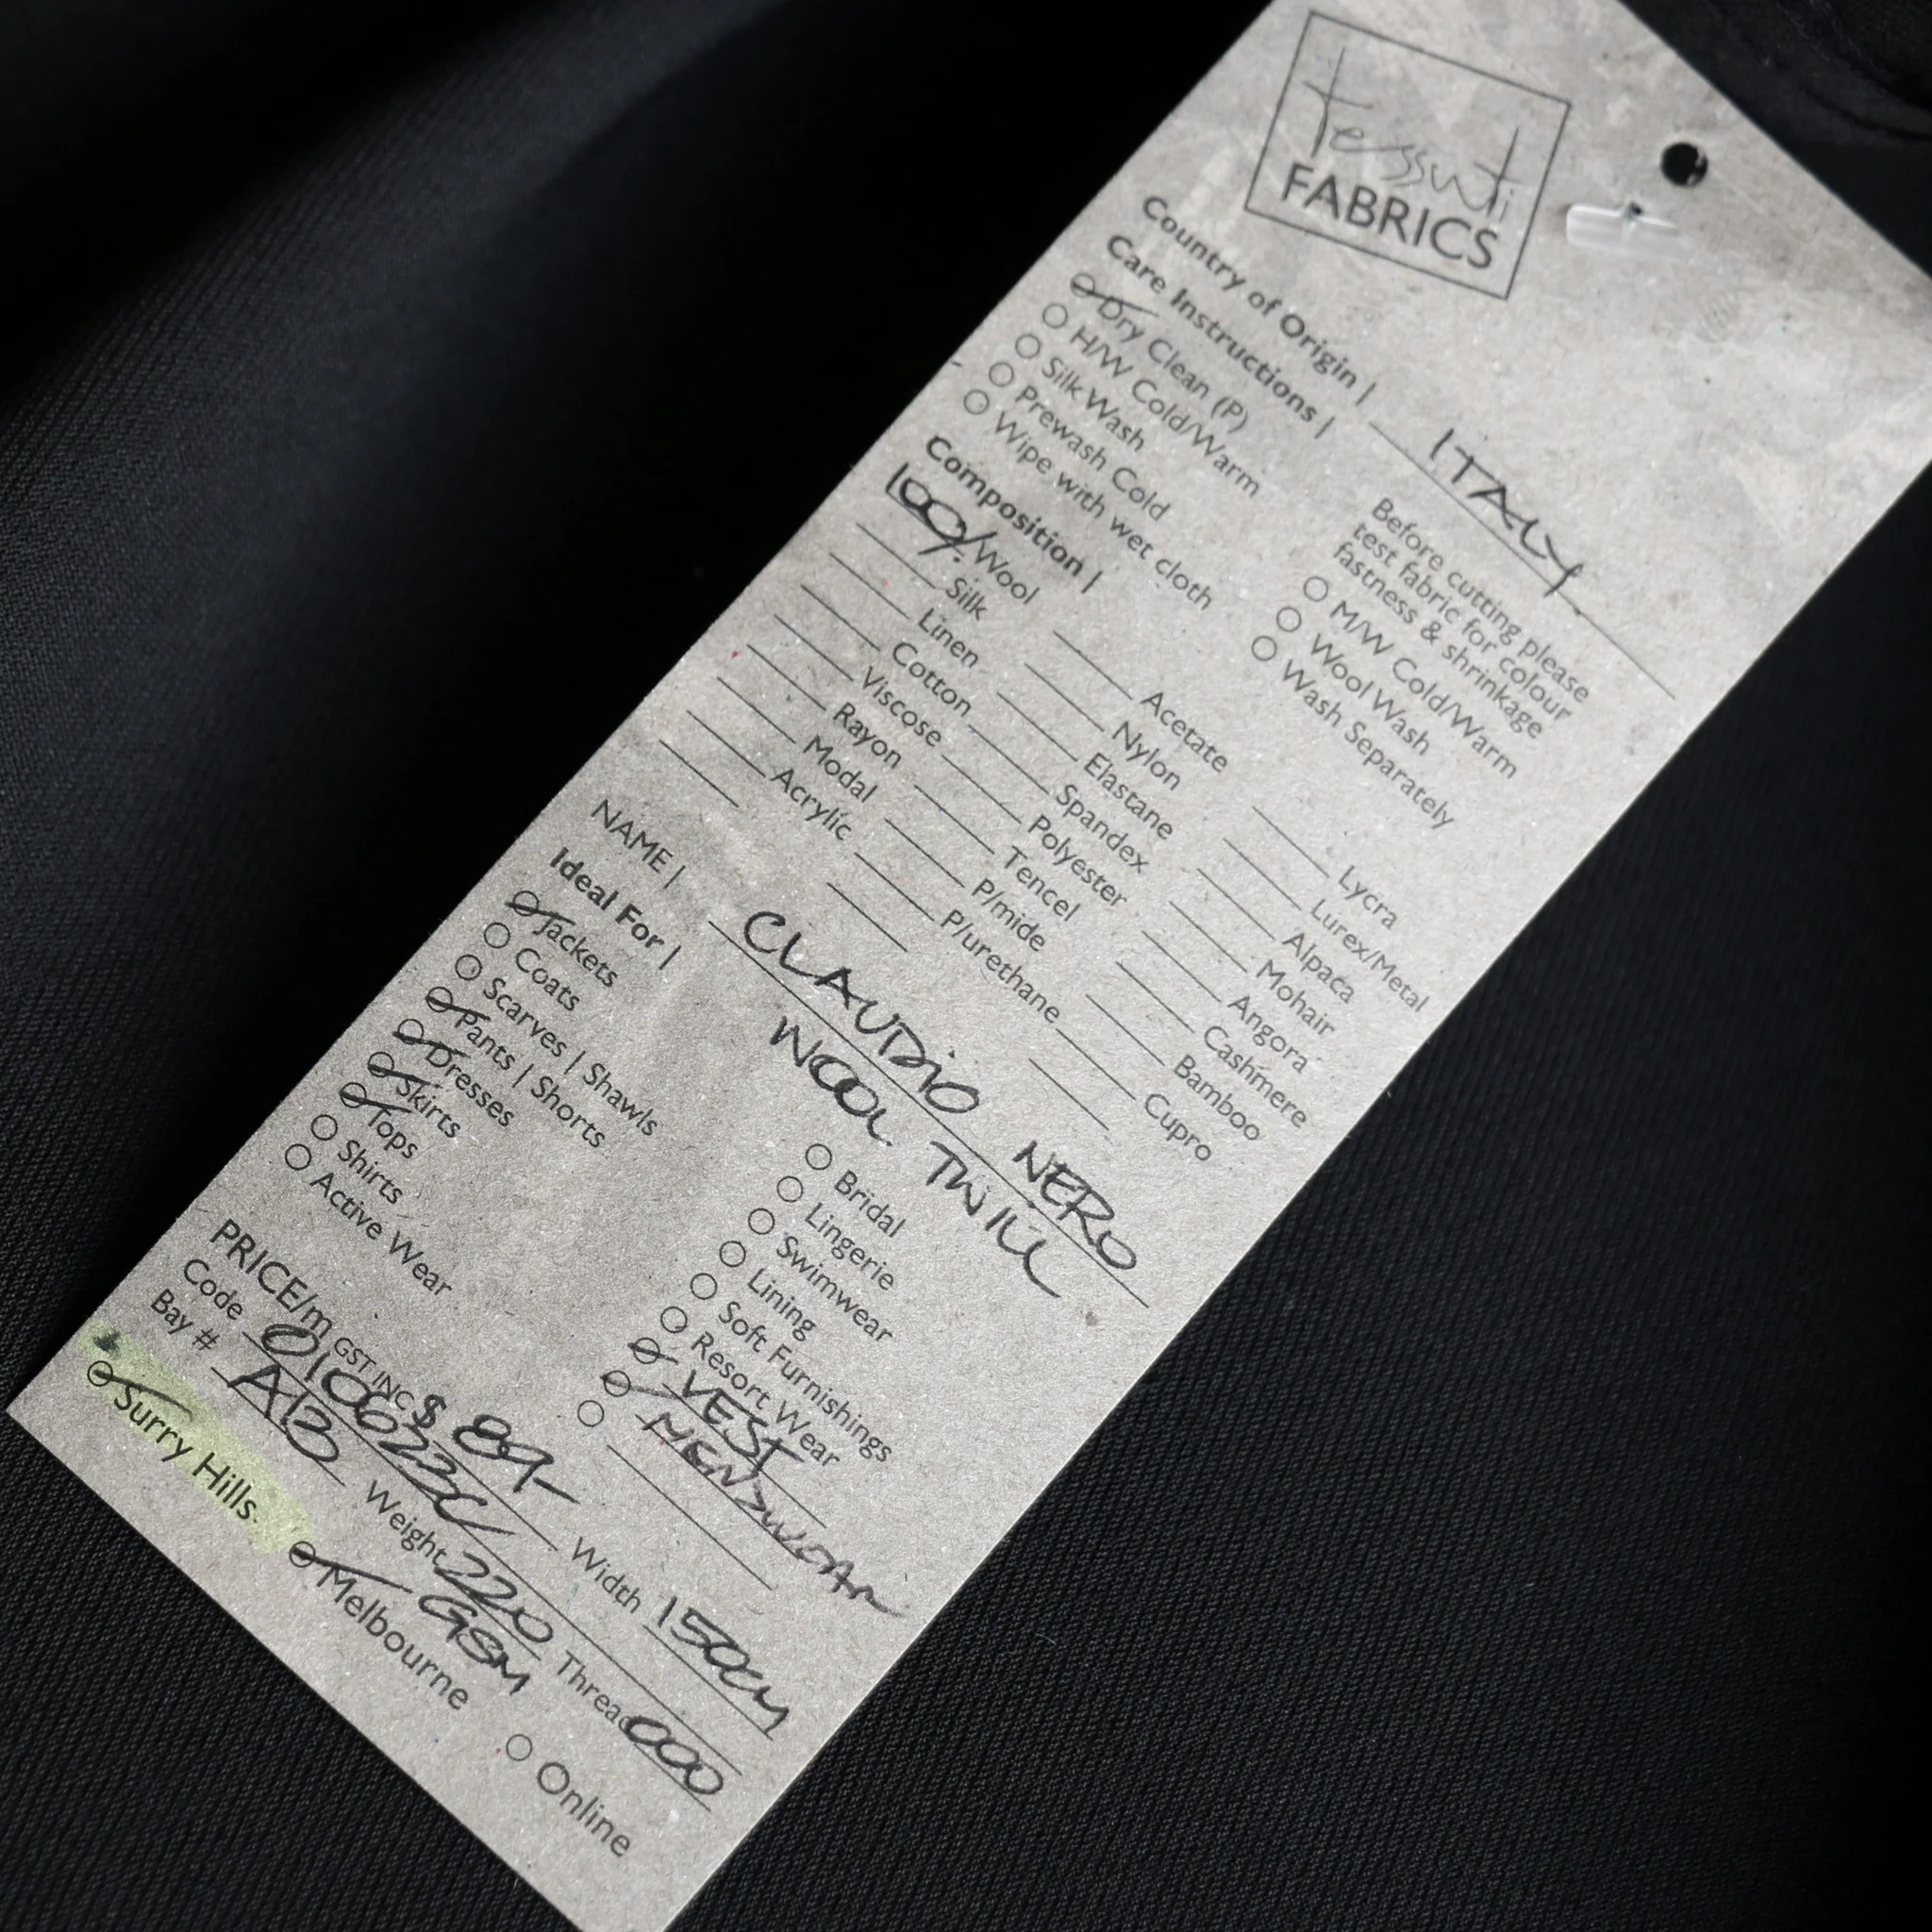 tessuti
FABRICS
Country of Origin | ITALY.
Care Instructions |
Dry Clean (P)
H/W Cold/Warm
Silk Wash
Prewash Cold
Wipe with wet cloth
Before cutting please
test fabric for colour
fastness & shrinkage
M/W Cold/Warm
Wool Wash
Wash Separately
Composition |
100% Wool
Silk
Linen
Cotton
Viscose
Rayon
Modal
Acrylic
Acetate
Nylon
Elastane
Spandex
Polyester
Tencel
P/mide
P/urethane
Lycra
Lurex/Metal
Alpaca
Mohair
Angora
Cashmere
Bamboo
Cupro
NAME | CLAUDIO NERO
WOOL TWILL
Ideal For |
Jackets
Coats
Scarves | Shawls
Pants | Shorts
Dresses
Skirts
Tops
Shirts
Active Wear
Bridal
Lingerie
Swimwear
Lining
Soft Furnishings
Resort Wear
VEST
MENSWEAR
PRICE/m GST INC $ 89-
Code 010622C Width 150CM
Bay # A13 Weight 220 GSM Thread 000
Surry Hills
Melbourne
Online